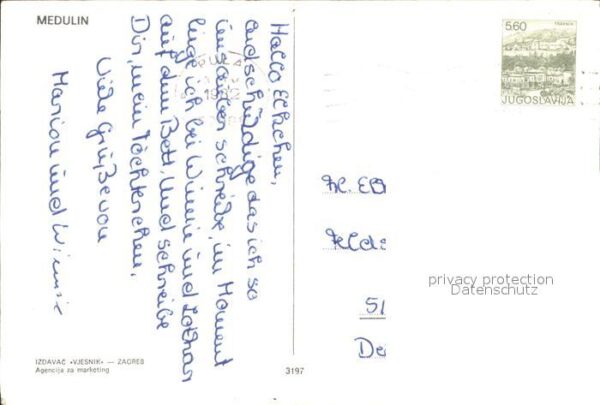 MEDULIN
Hallo Elkchen,
endschuldige das ich so
unsauber schreibe, im Moment
liege ich bei Winnie und Lothar
auf dem Bett, und schreibe
Dir, mein Töchterchen.
Viele Grüße von
Marion und Winnie
PULA
1982
5.60
TRAVNIK
JUGOSLAVIJA
privacy protection
Datenschutz
51
IZDAVAČ »VJESNIK« — ZAGREB
Agencija za marketing
3197